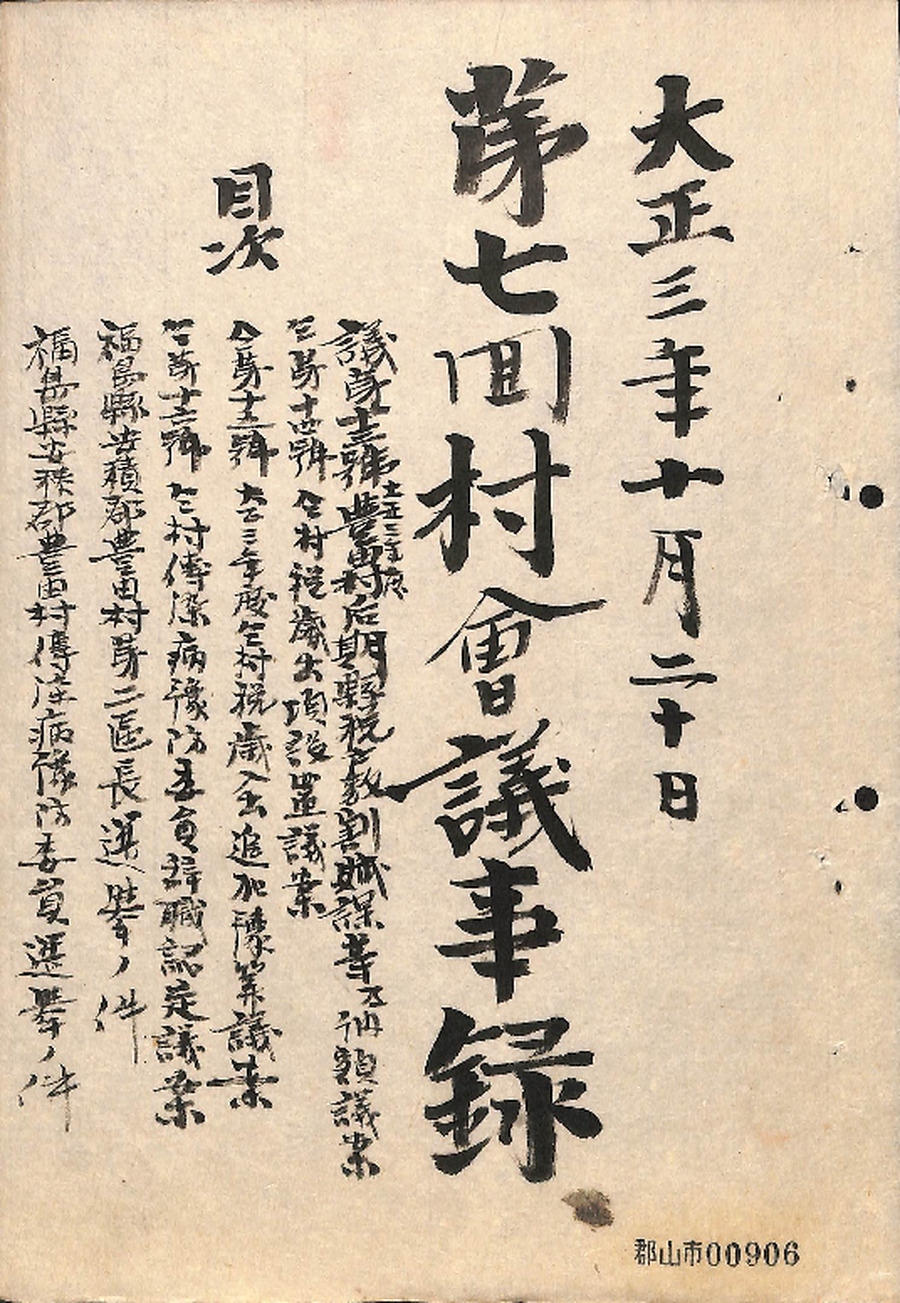 大正三年十月二十日
第七回村會議事録
目次
議第十三號 大正三年度豊田村后期縣税戸数割賦課等乃納額議案
仝第十四號 仝村税歳出項設置議案
仝第十五號 大正三年度仝村税歳入出追加豫算議案
仝第十六號 仝村傳染病豫防委員辞職認定議案
福島縣安積郡豊田村第二區長選挙ノ件
福島縣安積郡豊田村傳染病豫防委員選挙ノ件
郡山市00906